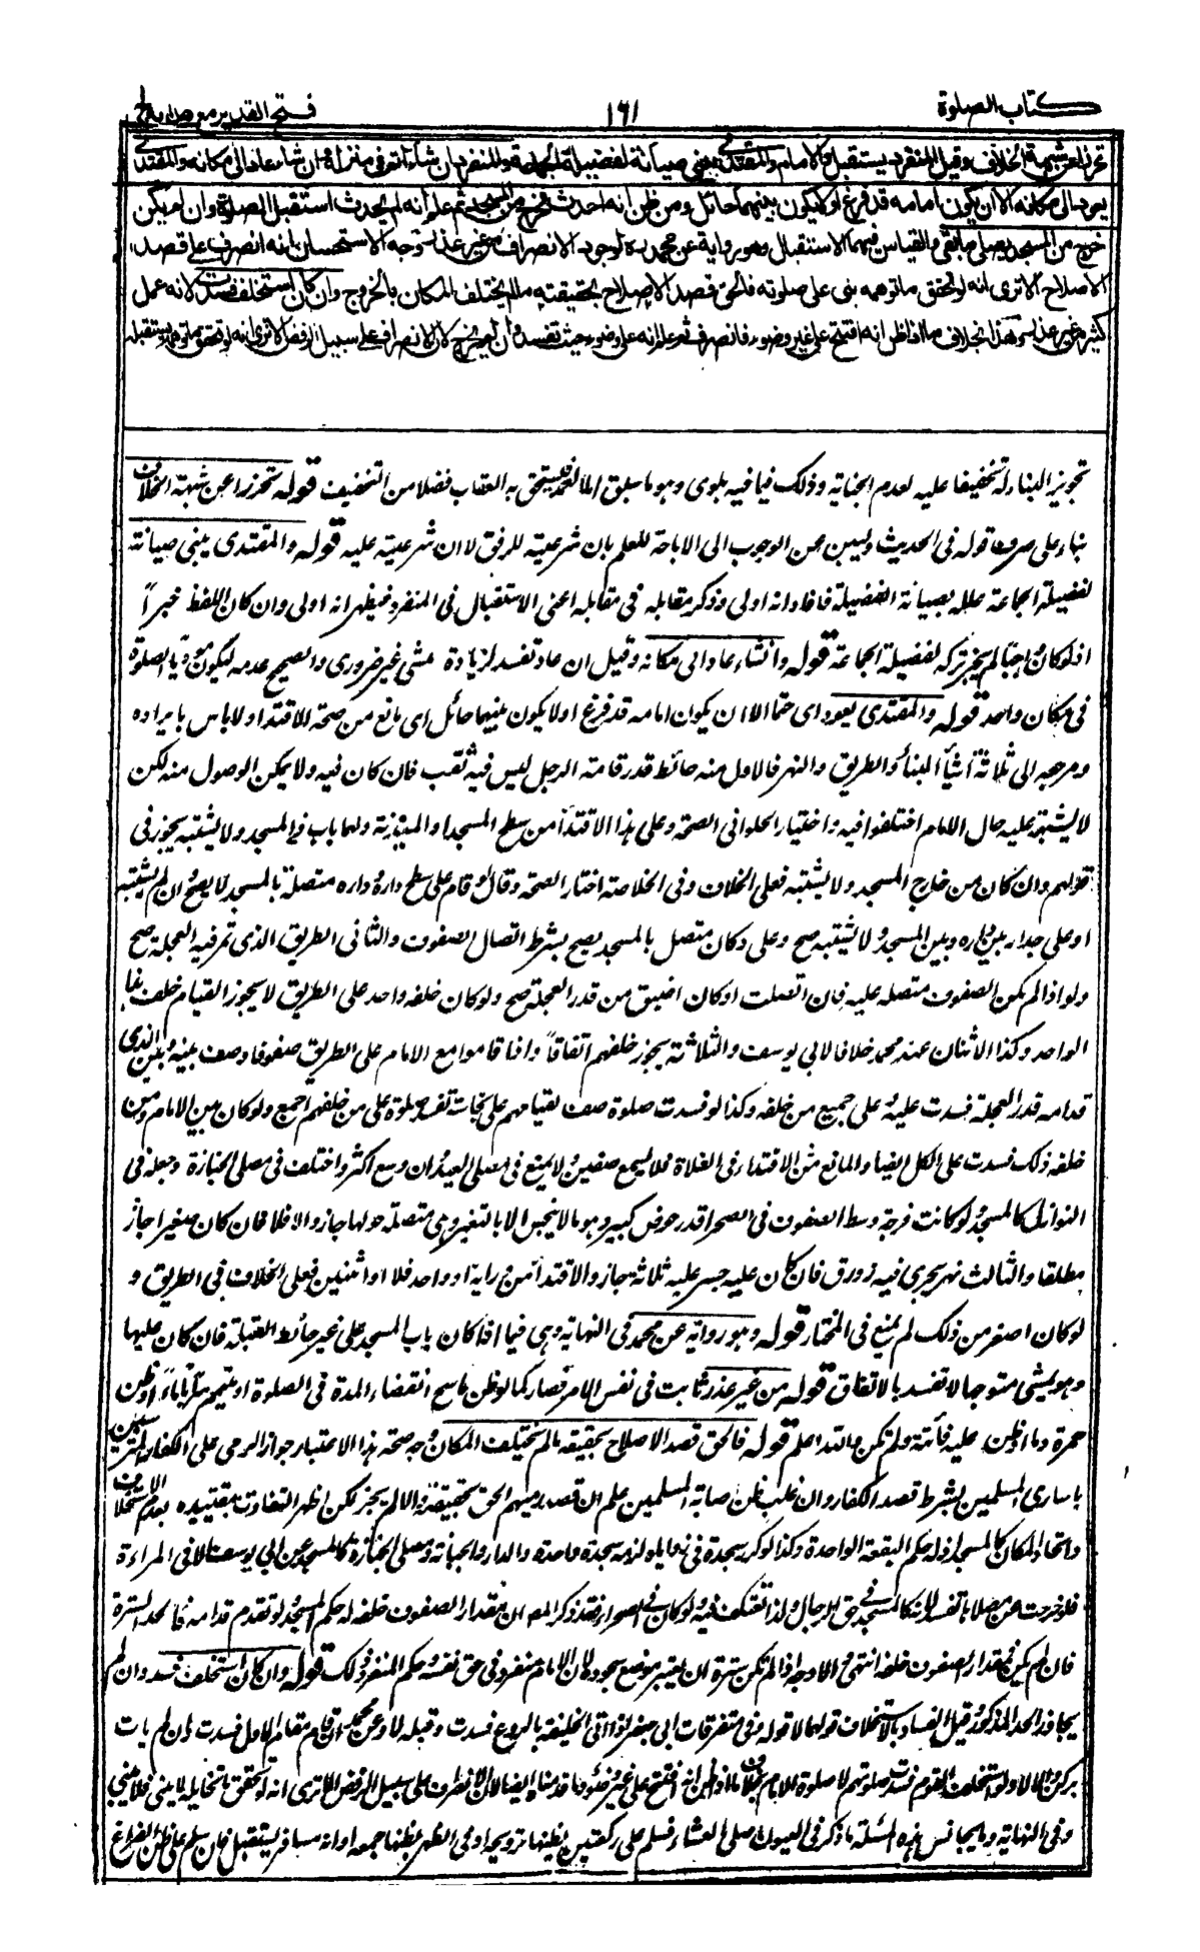 كتاب الصلوة
١٦١
فتح القدير مع هدايه ج١
تحرزا عن شبهة الخلاف وقيل المنفرد يستقبل والامام والمقتدى يبنى صيانة لفضيلة الجماعة والمنفرد ان شاء اتم فى منزله وان شاء عاد الى مكانه والمقتدى
يعود الى مكانه الا ان يكون امامه قد فرغ او لا يكون بينهما حائل ومن ظن انه احدث فخرج من المسجد ثم علم انه لم يحدث استقبل الصلوة وان لم يكن
خرج من المسجد يصلى ما بقى والقياس فيهما الاستقبال وهو رواية عن محمد لوجود الانصراف من غير عذر وجه الاستحسان انه انصرف على قصد
الاصلاح الا ترى انه لو تحقق ما توهمه بنى على صلوته فالحق قصد الاصلاح بحقيقته ما لم يختلف المكان بالخروج وان كان استخلف فسدت لانه عمل
كثير من غير عذر وهذا بخلاف ما اذا ظن انه افتتح على غير وضوء فانصرف ثم علم انه على وضوء حيث تفسد وان لم يخرج لان الانصراف على سبيل الرفض الا ترى انه لو تحقق ما توهمه يستقبله
تجويز البناء له تخفيفا عليه لعدم الجناية وذلك فيما فيه بلوى وهو ما سبق اما العمد فيستحق به العقاب فضلا من التخفيف قوله تحرزا عن شبهة الخلاف
بناء على صرف قوله فى الحديث وليبن عن الوجوب الى الاباحة للعلم بان شرعيته للرفق لا ان شرعيته عليه قوله والمقتدى يبنى صيانة
لفضيلة الجماعة علله بصيانة الفضيلة فافاد انه اولى وذكر مقابله فى مقابله اعنى الاستقبال فى المنفرد فيظهر انه اولى وان كان اللفظ خبراً
اذ لو كان واجبا لم يجز تركه لفضيلة الجماعة قوله وان شاء عاد الى مكانه وقيل ان عاد تفسد لزيادة مشى غير ضرورى والصحيح عدمه ليكون مؤديا الصلوة
فى مكان واحد قوله والمقتدى يعود اى حتما الا ان يكون امامه قد فرغ او لا يكون بينهما حائل اى مانع من صحة للاقتداء ولا باس بايراده
ومرجعه الى ثلاثة اشيأ البنأ والطريق والنهر فالاول منه حائط قدر قامة الرجل ليس فيه ثقب فان كان فيه ولا يمكن الوصول منه لكن
لا يشتبه عليه حال الامام اختلفوا فيه واختيار الحلوانى الصحة وعلى هذا الاقتدأ من سطح المسجد او الميذنة ولهما باب فى المسجد ولا يشتبه يجوز فى
قولهم وان كان من خارج المسجد ولا يشتبه فعلى الخلاف وفى الخلاصة اختار الصحة وقال لو قام على سطح داره وداره متصلة بالمسجد لا يصح وان لم يشتبه
او على جدار بين داره وبين المسجد ولا يشتبه صح وعلى دكان متصل بالمسجد يصح بشرط اتصال الصفوف والثانى الطريق الذى تمر فيه العجلة صح
ولو اذا لم يكن الصفوف متصلة عليه فان اتصلت او كان اضيق من قدر العجلة صح ولو كان خلفه واحد على الطريق لا يجوز القيام خلف هذا
الواحد وكذا الاثنان عند محمد خلافا لابى يوسف والثلاثة يجوز خلفهم اتفاقاً واذا قاموا مع الامام على الطريق صفوفا وصف بينه وبين الذى
قدامه قدر العجلة فسدت عليه وعلى جميع من خلفه وكذا لو فسدت صلوة صف لقيامهم على نجاسة تفسد صلوة على من خلفهم اجمع ولو كان بين الامام ومن
خلفه ذلك فسدت على الكل ايضا والمانع من الاقتداء فى الفلاة خلاء يسع صفين ولا يمنع فى مصلى العيد وان وسع اكثر واختلف فى مصلى الجنازة وجعله فى
النوازل كالمسجد ولو كانت فرجة وسط الصفوف فى الصحراء قدر حوض كبير وهو ما لا ينجس الا بالتغير وهى متصلة حولها جاز والا فلا فان كان صغيرا جاز
مطلقا والثالث نهر يجرى فيه زورق فان كان عليه جسر عليه ثلاثة جاز والاقتدأ من ورايه او واحد فلا او اثنين فعلى الخلاف فى الطريق و
لو كان اصغر من ذلك لم يمنع فى المختار قوله وهو رواية عن محمد فى النهاية وهى فيما اذا كان باب المسجد على غير حائط القبلة فان كان عليها
وهو يمشى متوجها لا تفسد بالاتفاق قوله من غير عذر ثابت فى نفس الامر فصار كما لو ظن ماسح انقضاء المدة فى الصلوة او متيمم سرابا ماءً او ظن
حمرة دما او ظن عليه فائتة ولم تكن والله اعلم قوله فالحق قصد الاصلاح بحقيقته ما لم يختلف المكان وجه صحة هذا الاعتبار جواز الرمى على الكفار المتترسين
باسارى المسلمين بشرط قصد الكفار وان غلب ظن اصابة المسلمين علم ان قصد رميهم الحق بحقيقته والا لم يجز لكن اظهر التفاوت بتقييده بعدم الاستخلاف
واتحاد المكان كالمسجد اذ له حكم البقعة الواحدة وكذا لو كرر سجدة فى زواياه لزمه سجدة واحدة والدار والجبانة ومصلى الجنازة كالمسجد عن ابى يوسف الا فى المراءة
فلو خرجت عن مصلاها تفسد لانه كالمسجد فى حق الرجال ولذا تعتكف فيه ولو كان فى الصحراء فقد ذكر المص ان مقدار الصفوف خلفه له حكم المسجد ولو تقدم قدامه فالحد السترة
فان لم يكن فمقدار الصفوف خلفه انتهى والاوجه اذا لم تكن سترة ان يعتبر موضع سجوده لان الامام منفرد فى حق نفسه وحكم المنفرد ذلك قوله وان كان استخلف فسد وان لم
يجاوز الحد المذكور قيل الفساد بالاستخلاف قولهما لا قوله وفى متفرقات ابى جعفر لو اتى الخليفة بالركوع فسدت وقبله لا وعن محمد ان قام مقام الاول فسدت وان لم يات
بركن والا لا ولو استخلف القوم فسدت صلوتهم لا صلوة الامام بخلاف ما اذا ظن انه افتتح على غير وضوء وما قدمنا ايضا لان الانصراف على سبيل الرفض الا ترى انه لو تحقق ما تخايله لا يبنى فلا يبنى
وفى النهاية ومما يجانس هذه المسئلة ما ذكر فى العيون صلى العشاء فسلم على ركعتين يظنها ترويحة او فى الظهر يظنها جمعة او انه مسافر يستقبل فان سلم على ظن الفراغ